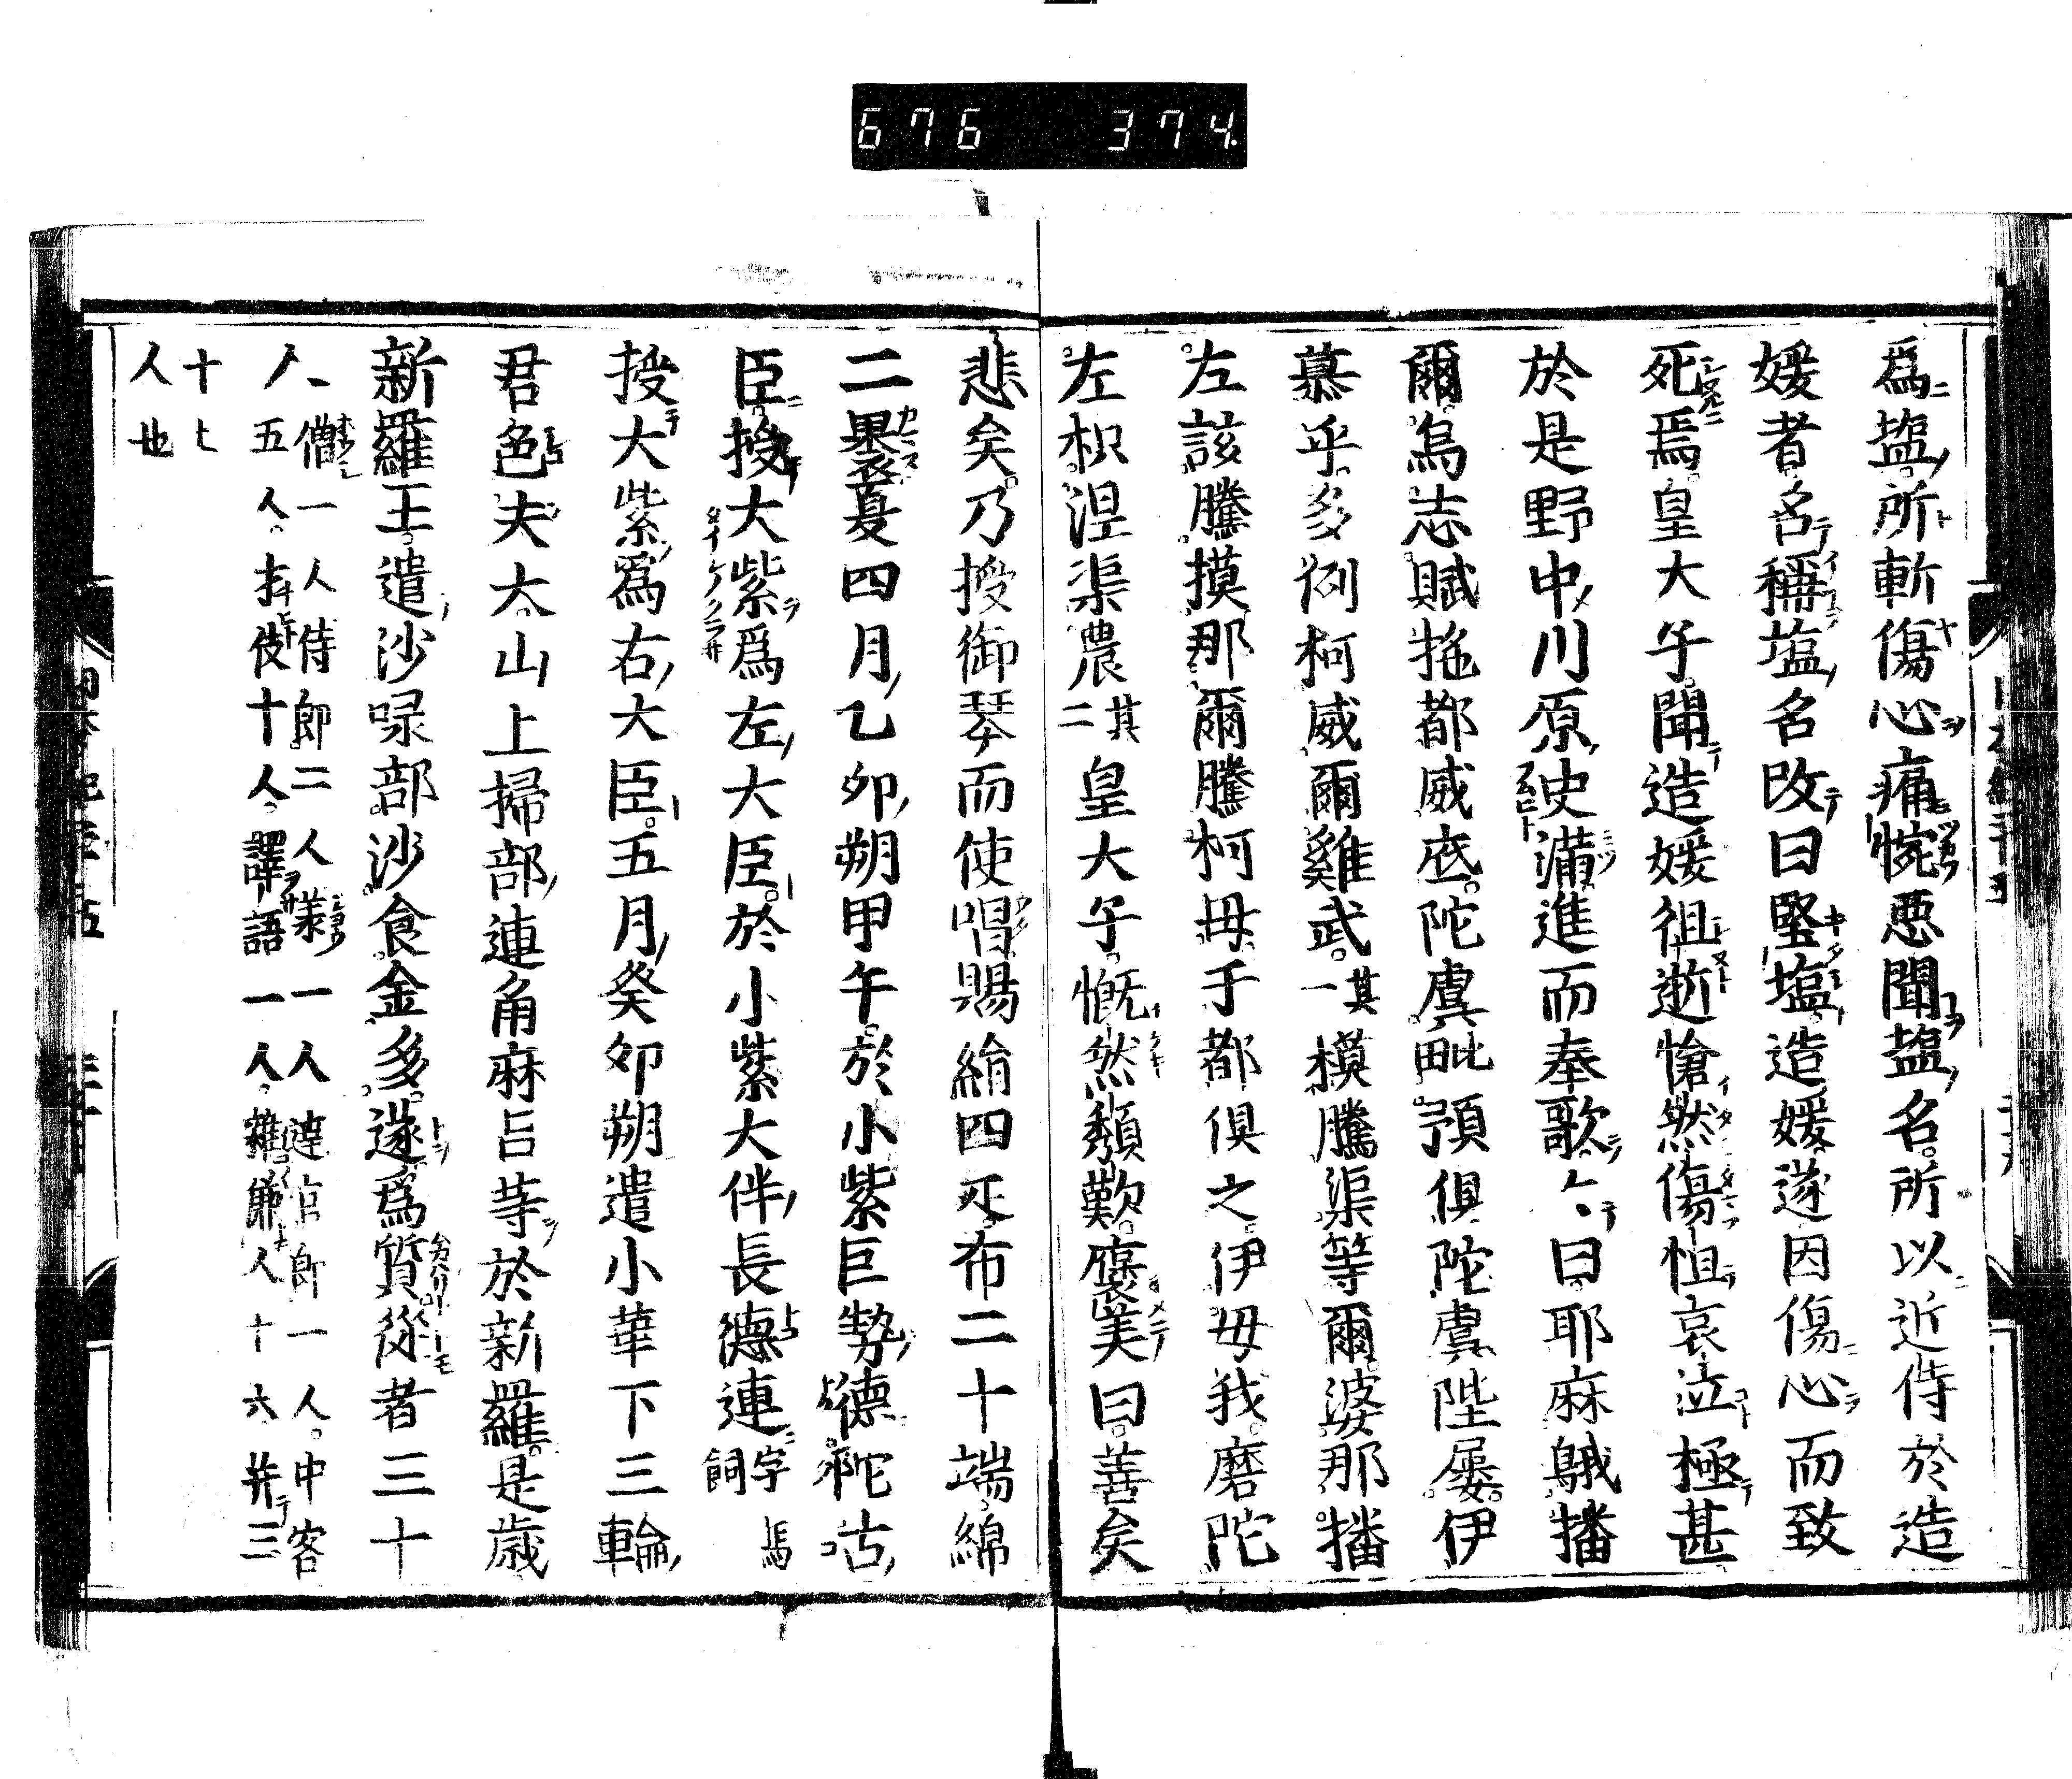 676 374
爲塩所斬傷心痛惋惡聞塩名所以近侍於造
媛者名稱塩名改曰堅塩造媛遂因傷心而致
死焉皇大子聞造媛徂逝愴然傷怛哀泣極甚
於是野中川原史滿進而奉歌々曰耶麻鵝播
爾烏志賦拖都威底陀虞毗預倶陀虞陛屢伊
慕乎多例柯威爾雞武其一模騰渠等爾婆那播
左該騰摸那爾騰柯母于都倶之伊母我磨陀
左枳涅渠農其二皇大子慨然頹歎褒美曰善矣
悲矣乃授御琴而使唱賜絹四疋布二十端綿
二褁夏四月乙卯朔甲午於小紫巨勢德陀古
臣授大紫爲左大臣於小紫大伴長德連字馬飼
授大紫爲右大臣五月癸卯朔遣小華下三輪
君色夫大山上掃部連角麻呂等於新羅是歳
新羅王遣沙㖨部沙食金多遂爲質從者三十
七人僧一人侍郎二人丞一人達官郎一人中客
五人才伎十人譯語一人雜傔人十六并三
十七
人也